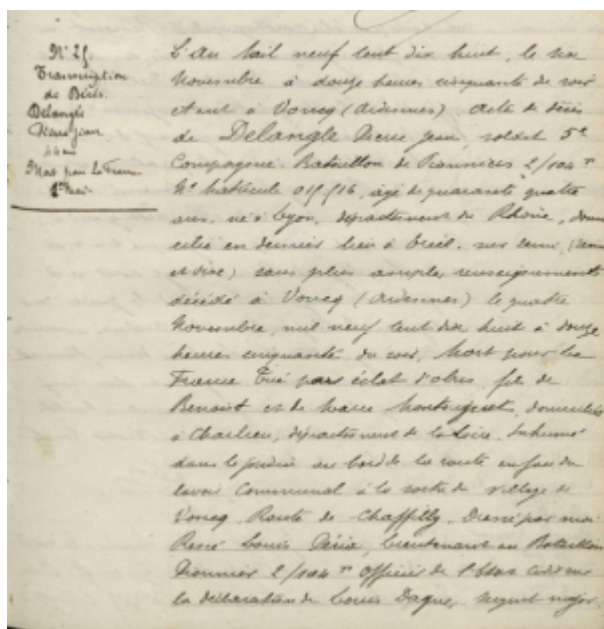 N° 25
Transcription
de Décès.
Delangle
Jean
44 ans
Mort pour la France
L'an mil neuf cent dix huit, le six
Novembre à douze heures cinquante du soir
étant à Voncq (Ardennes) Acte de décès
de Delangle Jean, soldat 5e
Compagnie Bataillon de Pionniers 2/104e
N° matricule âgé de quarante quatre
ans, né à Lyon, département du Rhône, domi
cilié en dernier lieu à sur
et Oise) sans plus amples renseignements
décédé à Voncq (Ardennes) le quatre
Novembre, mil neuf cent dix huit à douze
heures cinquante du soir, Mort pour la
France Tué par éclat d'obus, fils de
Benoist et de Marie domiciliés
à Charlieu, département de la Loire. Inhumé
dans le jardin au bord de la route en face du
lavoir Communal à la sortie du village de
Voncq, Route de Chuffilly. Dressé par moi
René Louis Lieutenant au Bataillon
Pionnier 2/104e Officier de l'État civil sur
la déclaration de Louis sergent major